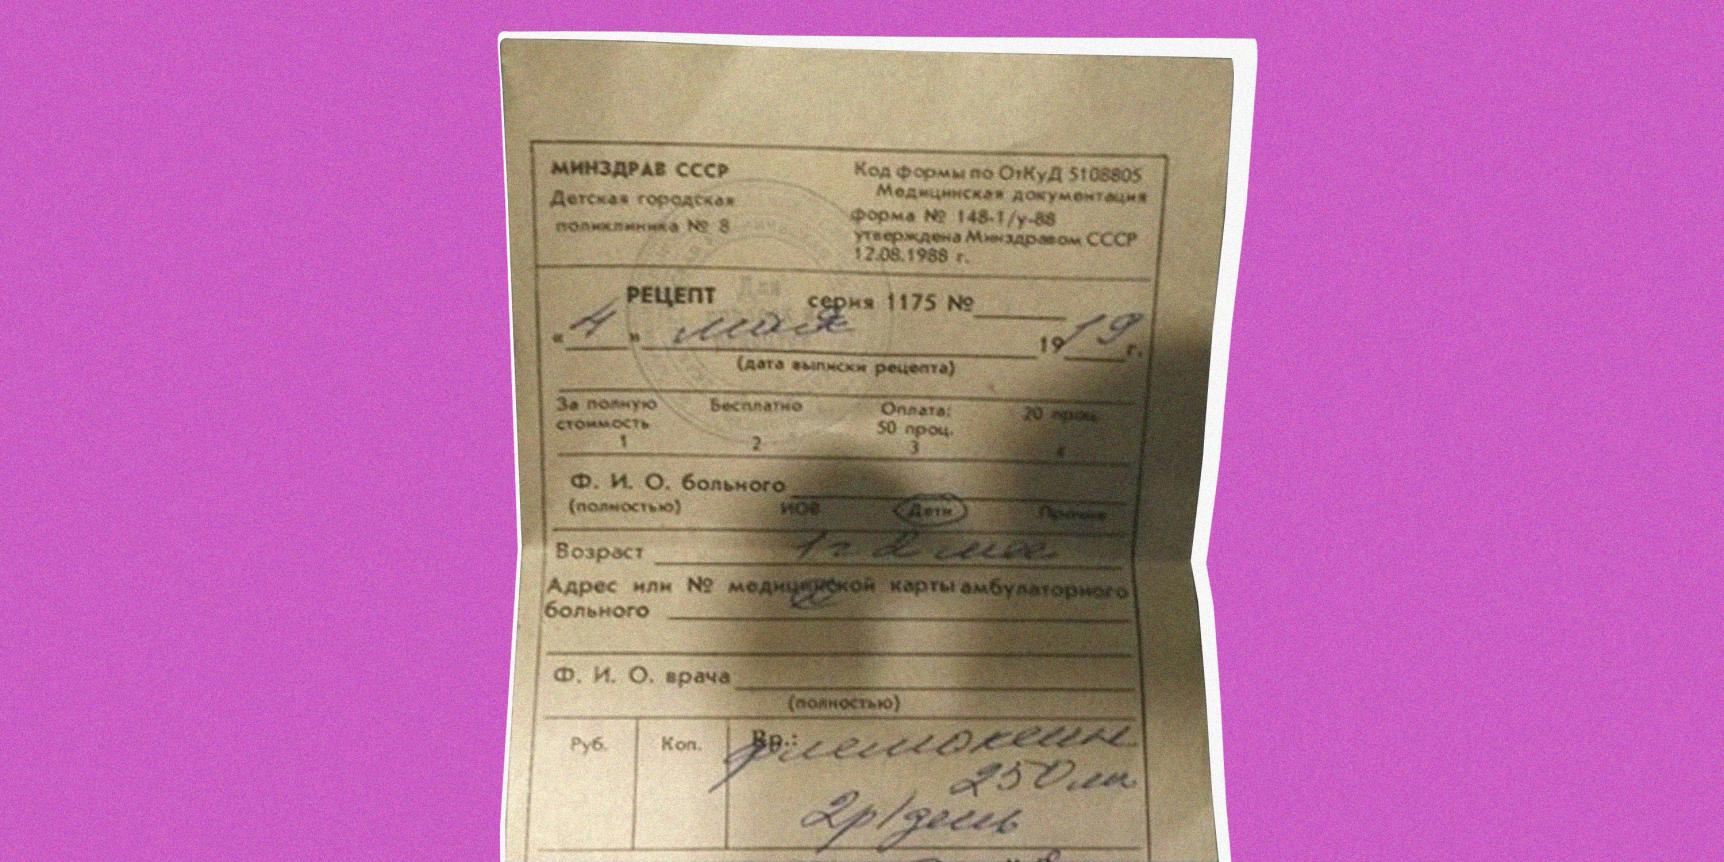 МИНЗДРАВ СССР
Детская городская
поликлиника № 8
Код формы по ОтКуД 5108805
Медицинская документация
форма № 148-1/у-88
утверждена Минздравом СССР
12.08.1988 г.
РЕЦЕПТ серия 1175 №
« 4 » мая 19 19 г.
(дата выписки рецепта)
За полную стоимость
1
Бесплатно
2
Оплата:
50 проц.
3
20 проц.
4
Ф. И. О. больного
(полностью) ИОВ Дети Прочие
Возраст 1 г 2 мес
Адрес или № медицинской карты амбулаторного
больного
Ф. И. О. врача
(полностью)
Руб. Коп. Rp.: флемоксин
250 мг
2р/день